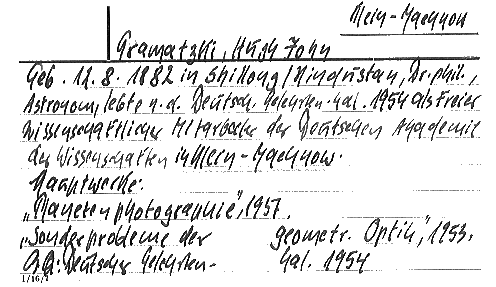 Klein-Machnow
Gramatzki, Hugh John
Geb. 12.8.1882 in Shillong/Hindustan, Dr. phil.,
Astronom, lebte n. d. Deutsch. Gelehrten-Kal. 1954 als freier
wissenschaftlicher Mitarbeiter der Deutschen Akademie
der Wissenschaften in Klein-Machnow.
Hauptwerke:
„Planetenphotographie", 1951.
„Sonderprobleme der geometr. Optik", 1953.
Deutscher Gelehrten-Kal. 1954